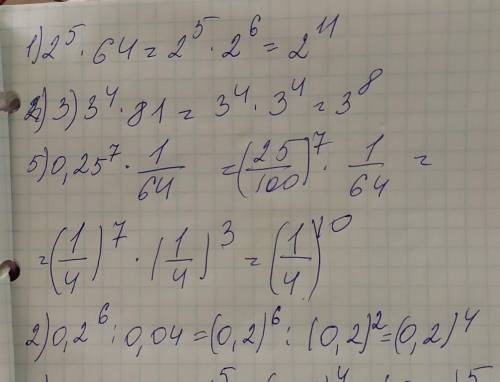 1) 2⁵ · 64 = 2⁵ · 2⁶ = 2¹¹
3) 3⁴ · 81 = 3⁴ · 3⁴ = 3⁸
5) 0,25⁷ · 1/64 = (25/100)⁷ · 1/64 =
= (1/4)⁷ · (1/4)³ = (1/4)¹⁰
2) 0,2⁶ : 0,04 = (0,2)⁶ : (0,2)² = (0,2)⁴